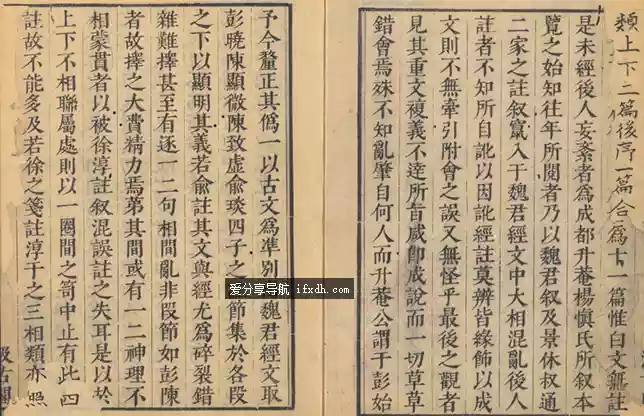 類上下二篇後序一篇合爲十一篇惟白文無註
是未經後人妄紊者爲成都升菴楊慎氏所叙本
覽之始知往年所閱者乃以魏君叙及景休叔通
二家之註叙竄入于魏君經文中大相混亂後人
註者不知所自訛以因訛經註莫辨皆緣飾以成
文則不無牽引附會之誤又無怪乎最後之觀者
見其重文複義不達所旨咸卽成說而一切草草
錯會焉殊不知亂肇自何人而升菴公謂于彭始
予今釐正其僞一以古文爲準別魏君經文取
彭曉陳顯微陳致虛俞琰四子之節集於各段
之下以顯明其義若俞註其文與經尤爲碎裂錯
雜難擇甚至有逐一二句相間亂非段節如彭陳
者故擇之大費精力焉第其間或有一二神理不
相蒙貫者以被徐淳註叙混誤註之失耳是以於
上下不相聯屬處則以一圈間之苟中止有此四
註故不能多及若徐之箋註淳于之三相類亦照
汲古閣
爱分享导航 ifxdh.com